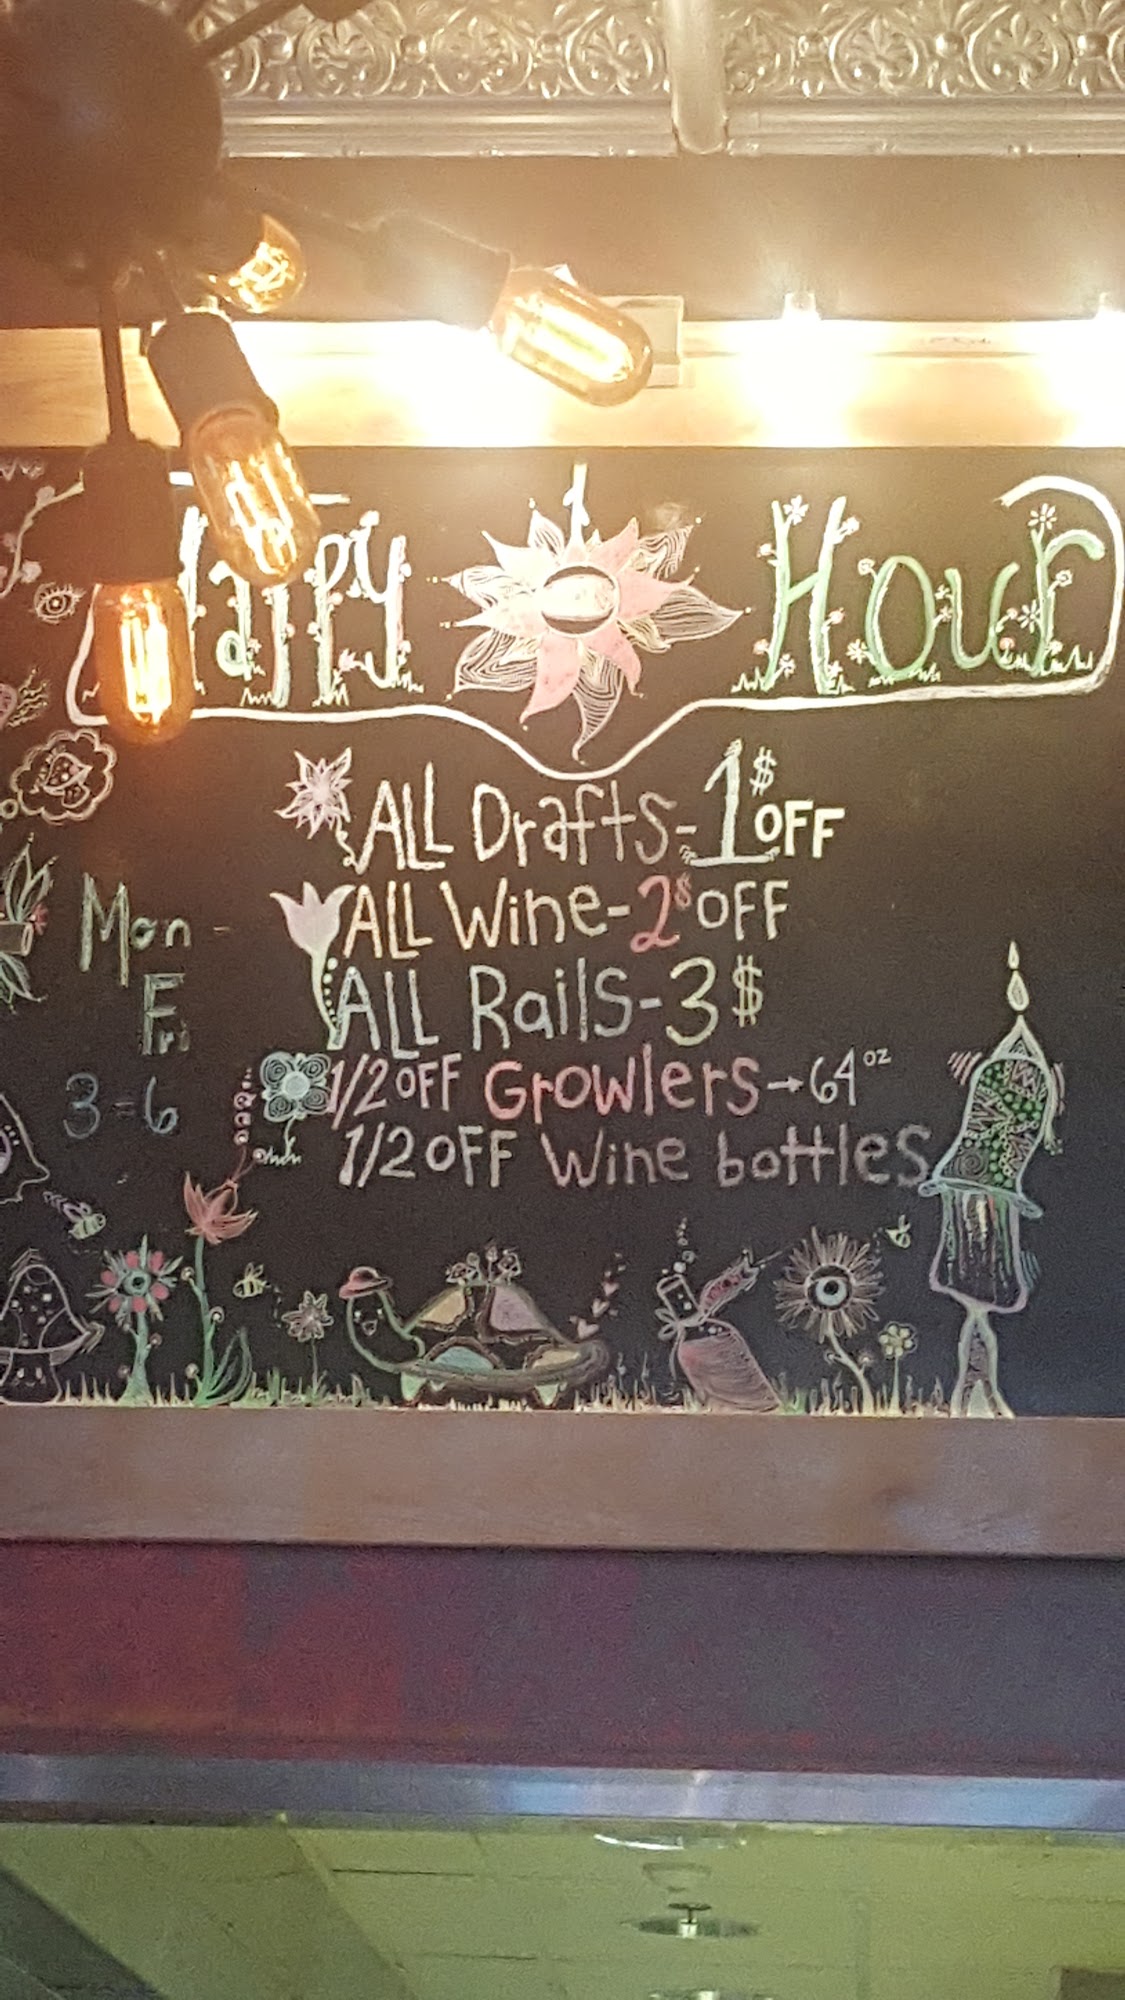 Happy Hour
ALL Drafts - 1$ OFF
ALL Wine - 2$ OFF
ALL Rails - 3$
1/2 OFF Growlers → 64 oz
1/2 OFF Wine bottles
Mon -
Fri
3 - 6